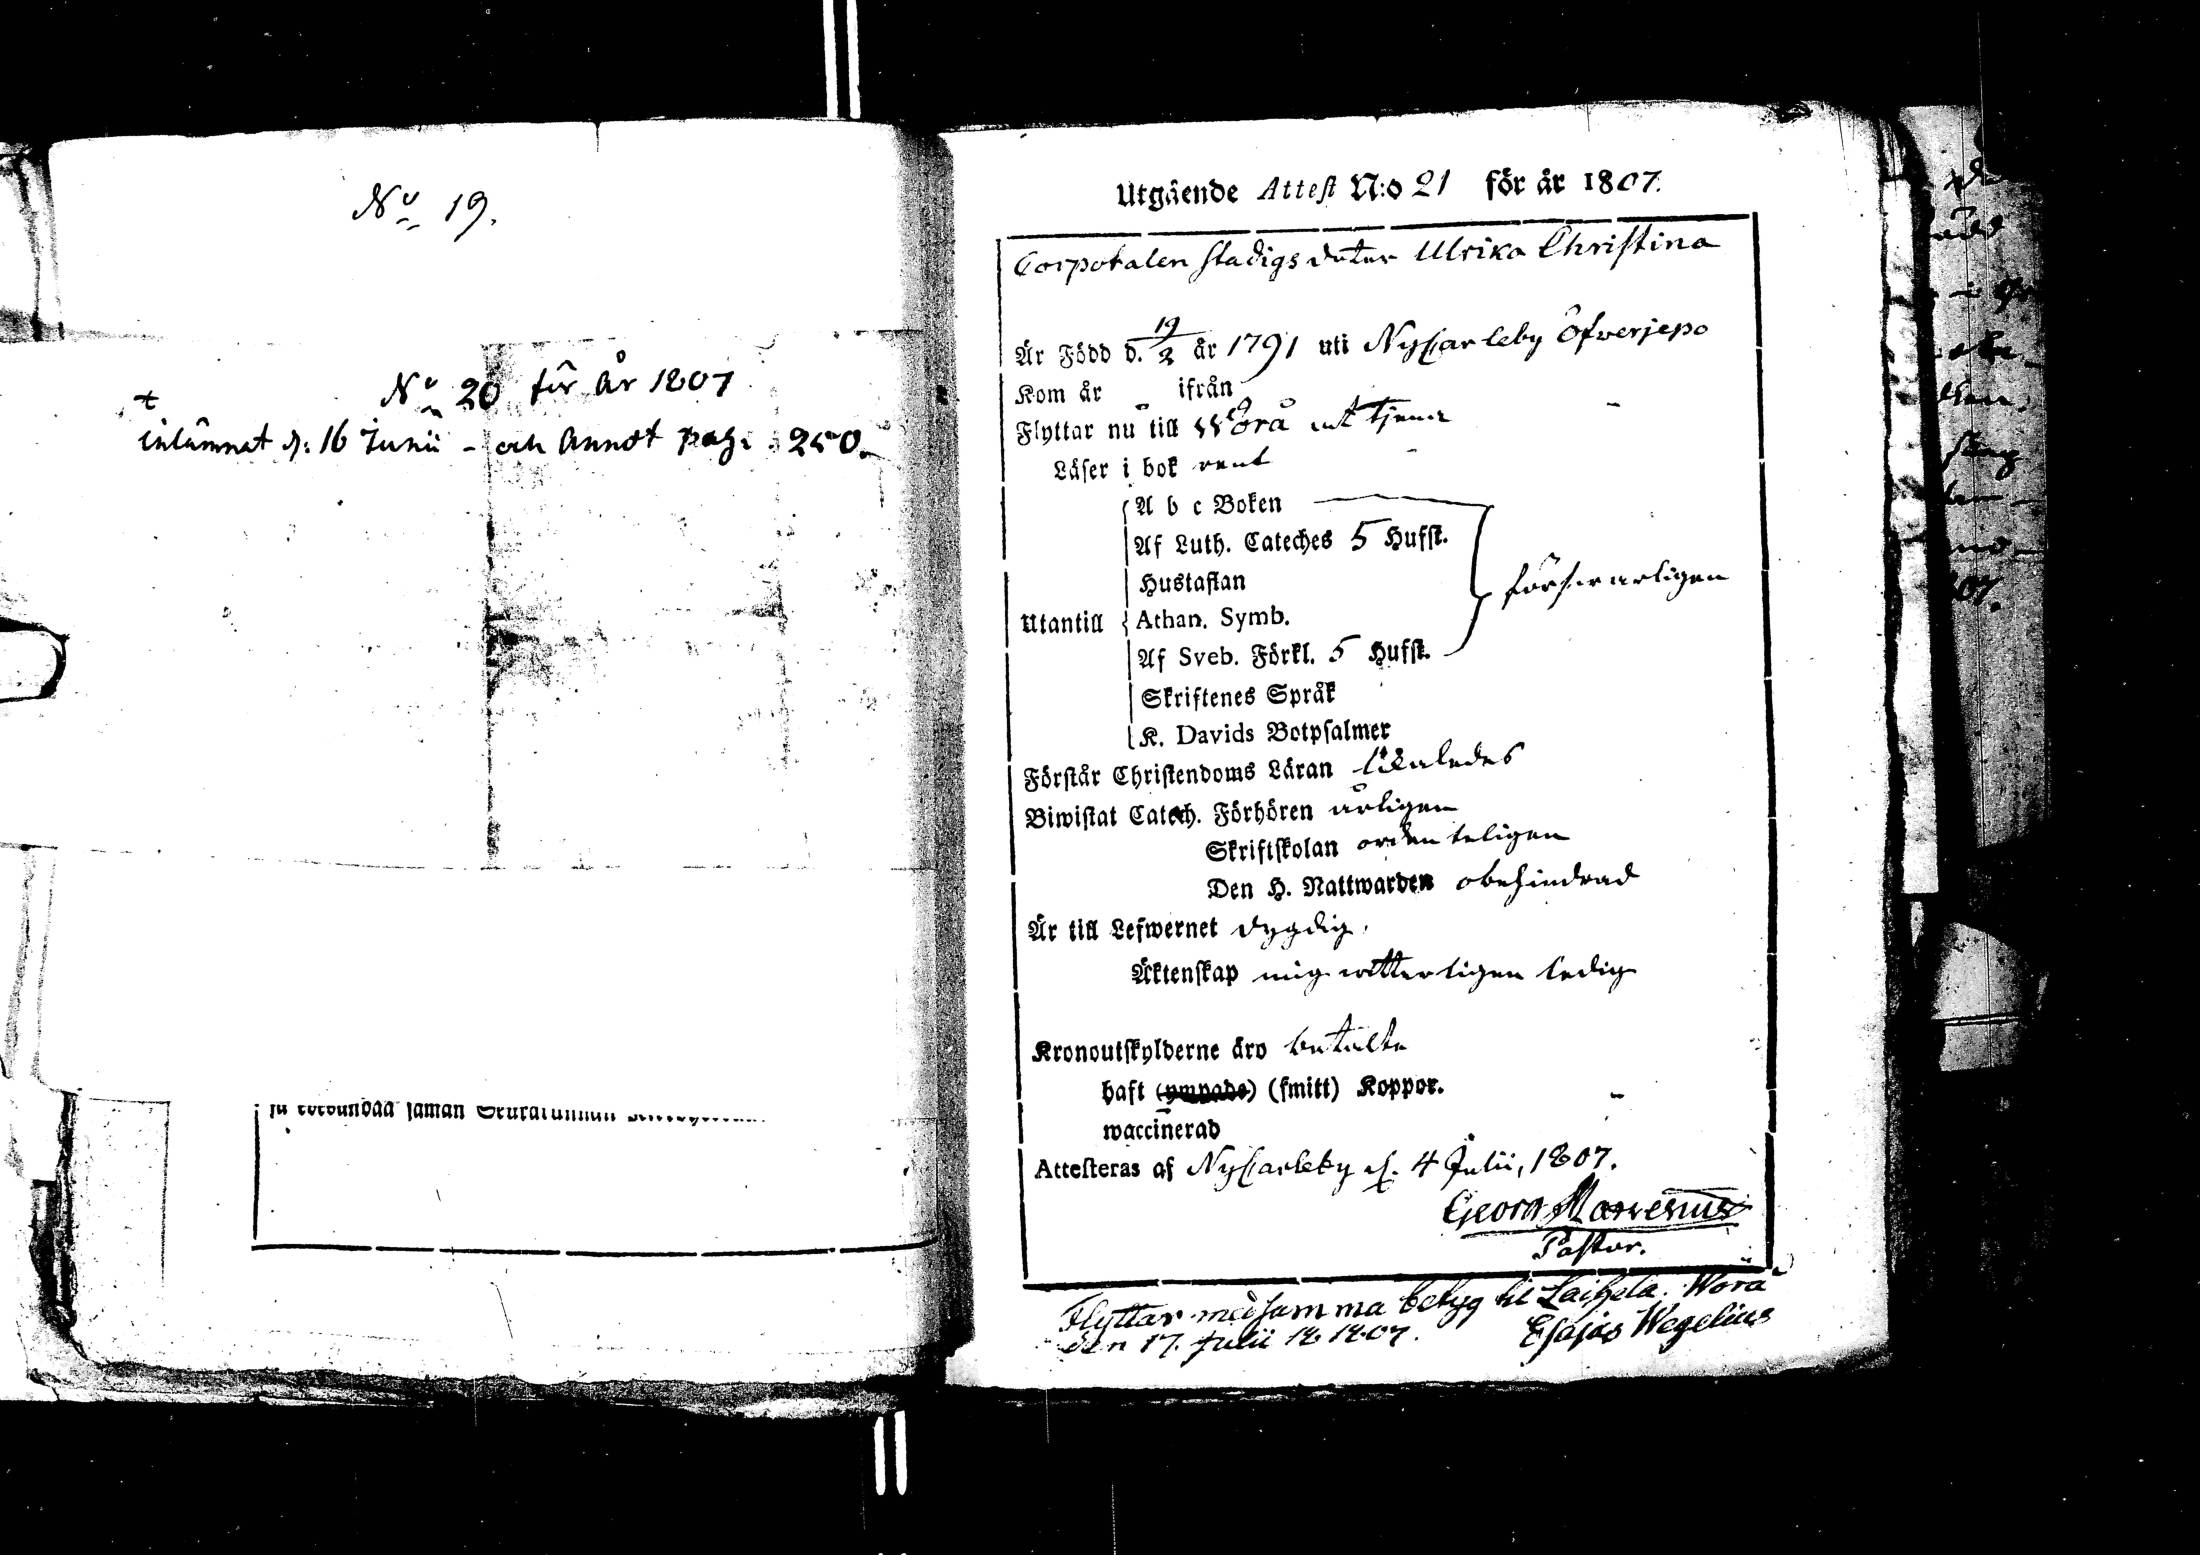 No 19.
No 20 för år 1807
inlämnat d: 16 Junii - och Annot pag. 250.
Utgående Attest N:o 21 för år 1807.
Corporalen Stadigs doter Ulrika Christina
Är Född d. 19/2 år 1791 uti NyCarleby Öfwerjepo
Kom år ifrån
Flyttar nu till Wörå at tjena
Läser i bok rent
A b c Boken
Af Luth. Cateches 5 Hufst.
Hustaflan
försvarligen
Utantill Athan. Symb.
Af Sveb. Förkl. 5 Hufst.
Skriftenes Språk
K. Davids Botpsalmer
Förstår Christendoms Läran likaledes
Biwistat Catech. Förhören årligen
Skriftskolan ordenteligen
Den H. Nattwarden obehindrad
Är till Lefwernet dygdig,
Äktenskap mig witterligen ledig
Kronoutskylderne äro betalte
haft (ympade) (smitt) Koppor.
waccinerad
Attesteras af NyCarleby d. 4 Julii, 1807.
Georg
Pastor.
Flyttar med samma betyg til Laihela. Wörå
den 17. Julii 1807. Esajas Wegelius